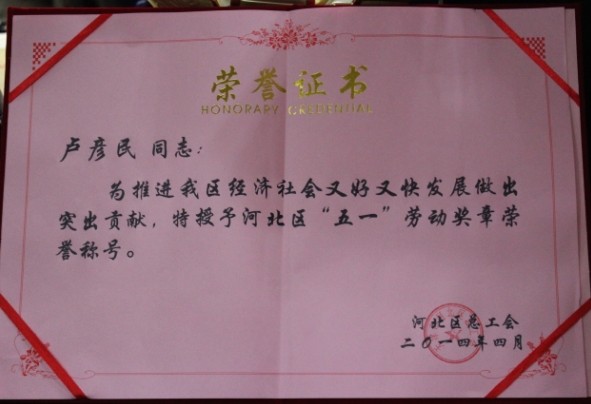 荣誉证书
HONORARY CREDENTIAL
卢彦民 同志：
为推进我区经济社会又好又快发展做出
突出贡献，特授予河北区“五一”劳动奖章荣
誉称号。
河北区总工会
二〇一四年四月